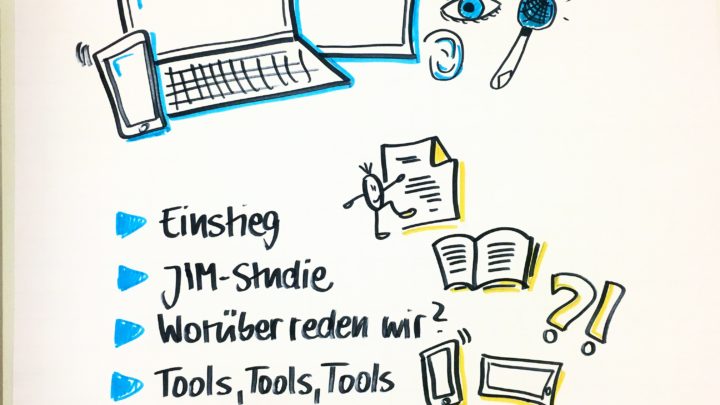 Einstieg
JIM-Studie
Worüber reden wir?
Tools, Tools, Tools
?!